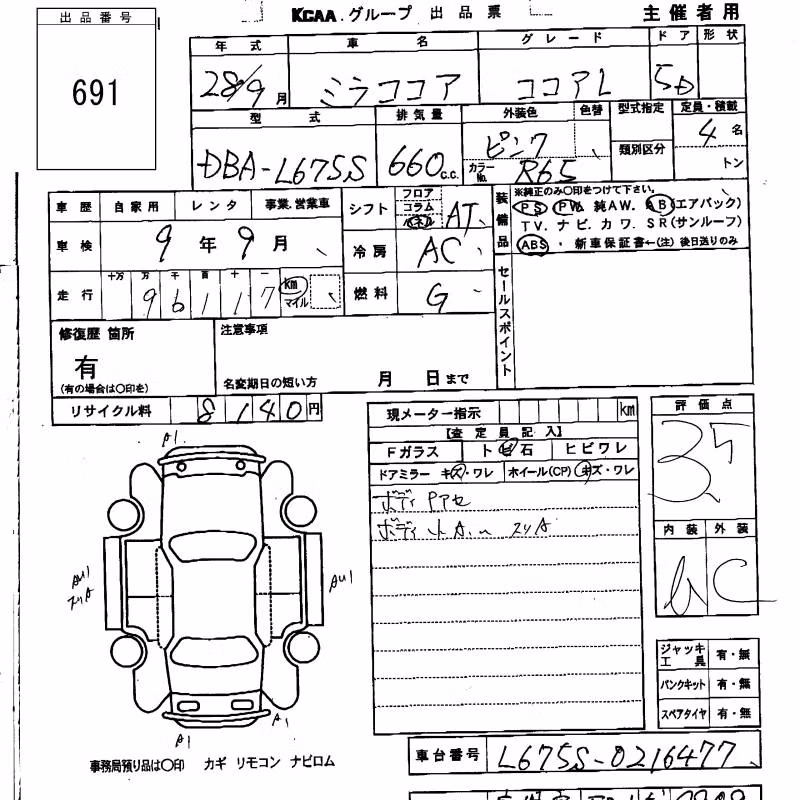 出品番号
691
KCAA.グループ 出品票
主催者用
年式 車名 グレード ドア 形状
28/9月 ミラココア ココアL 5D
型式 排気量 外装色 色替 型式指定 定員・積載
DBA-L675S 660c.c. ピンク 4名
カラーNo. R65 類別区分 トン
車歴 自家用 レンタ 事業.営業車
シフト フロア コラム パネル AT
装備品
※純正のみ〇印をつけて下さい。
PS PW 純AW. AB(エアバック)
TV. ナビ. カワ. SR(サンルーフ)
ABS ・ 新車保証書←(注) 後日送りのみ
車検 9年9月
冷房 AC
走行 十万 万 千 百 十 一
96117 km マイル
燃料 G
セールスポイント
修復歴 箇所
有
(有の場合は〇印を)
注意事項
名変期日の短い方 月 日まで
リサイクル料 8140円
現メーター指示 km
【査定員記入】
Fガラス トビ石 ヒビワレ
ドアミラー キズ・ワレ ホイール(CP) キズ・ワレ
ボディ
ボディ
評価点
3.5
内装 外装
C
A1
AU1
AU1
A1
A1
ジャッキ工具 有・無
パンクキット 有・無
スペアタイヤ 有・無
車台番号 L675S-0216477
事務局預り品は〇印 カギ リモコン ナビロム